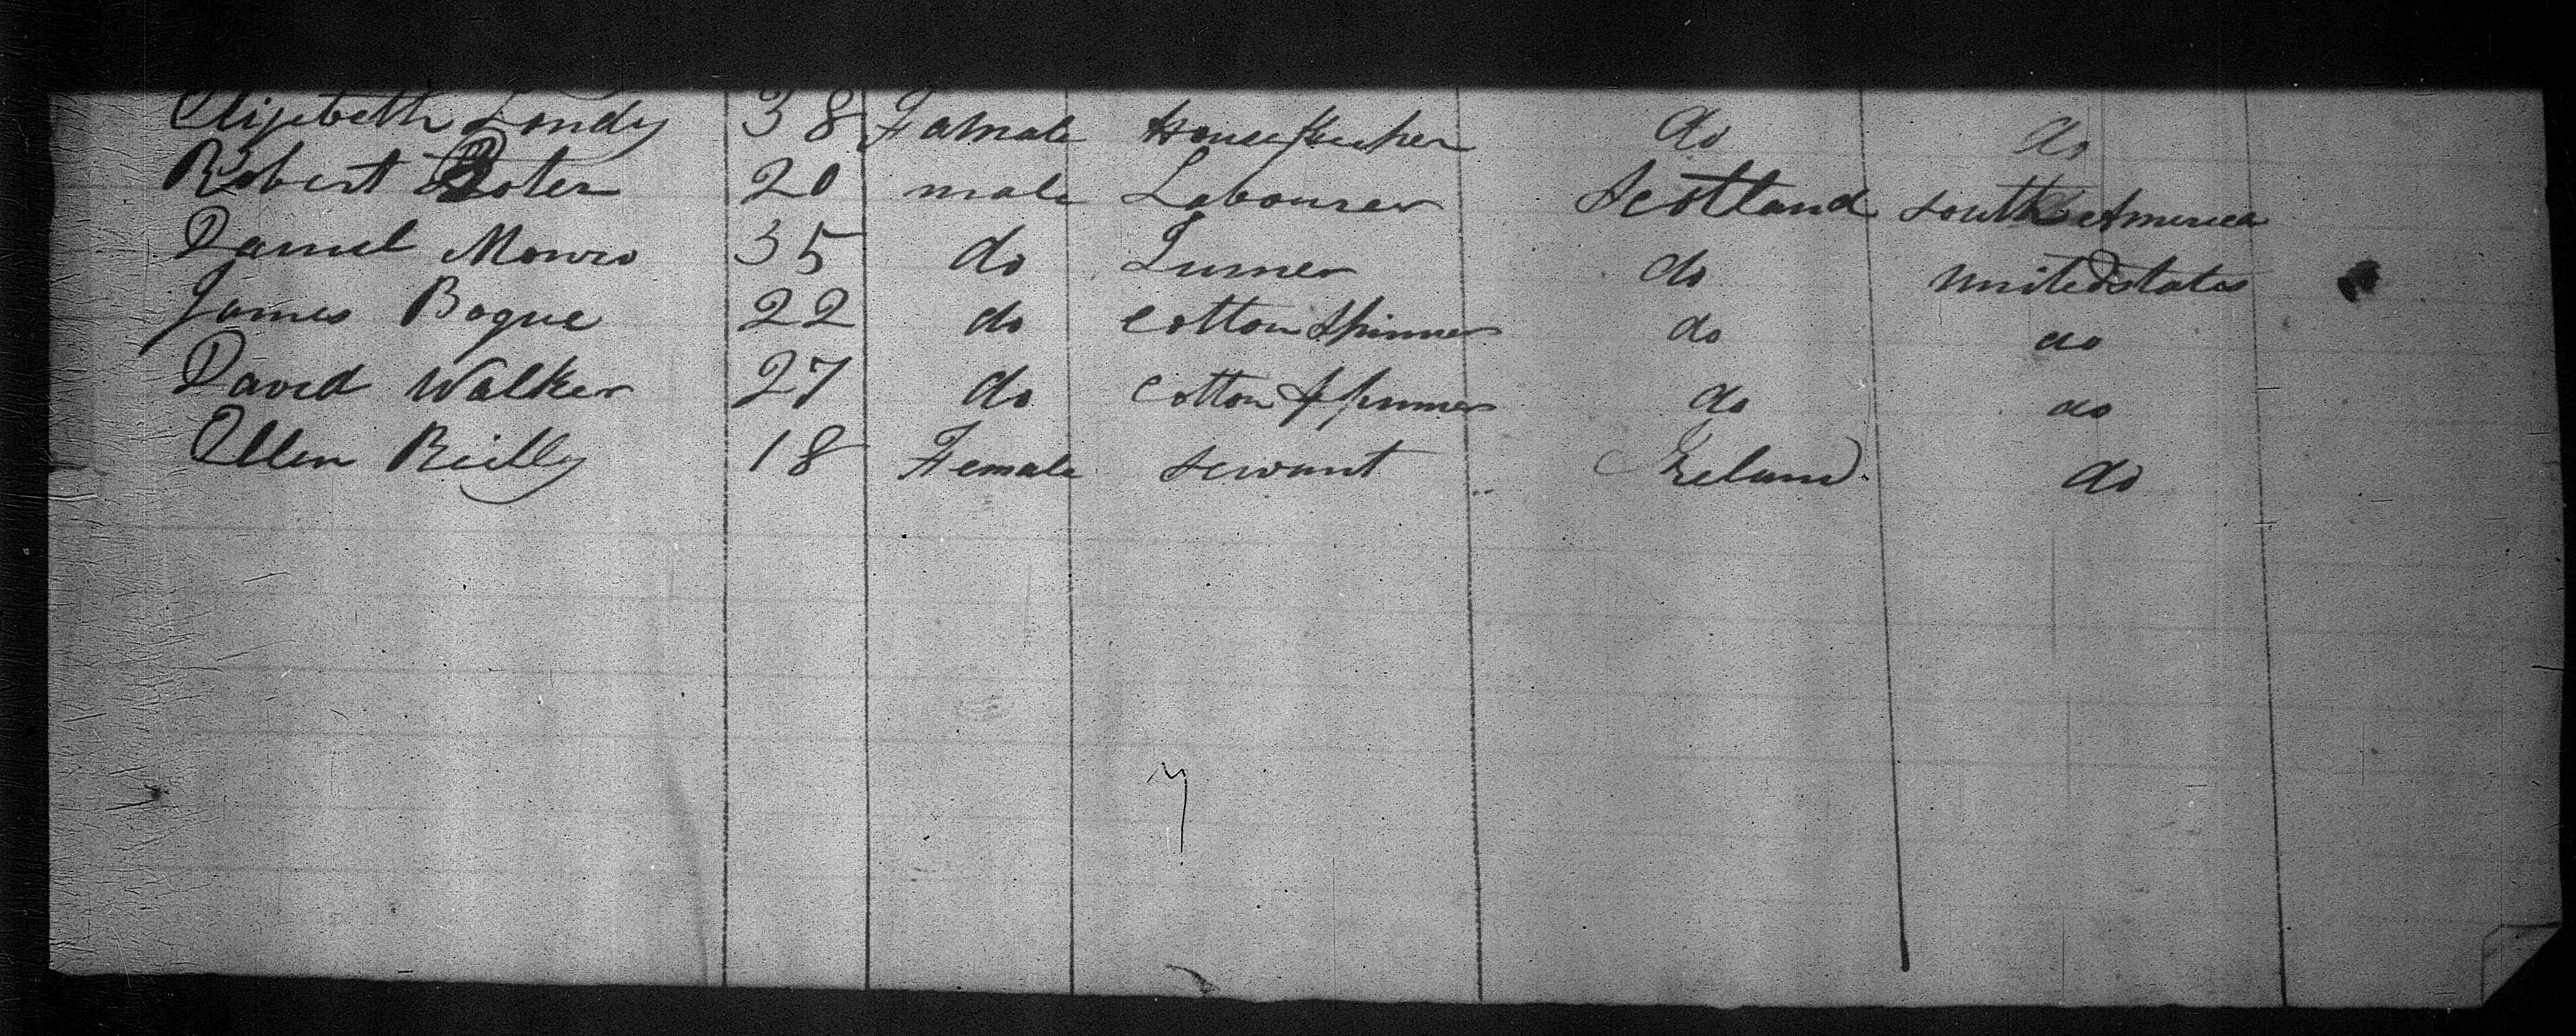 Elizebeth Londy 38 Famale House Keeper do do
Robert Boter 20 male Labourer Scotland South America
Daniel Monro 35 do Turner do United States
James Bogue 22 do Cotton Spinner do do
David Walker 27 do Cotton Spinner do do
Ellen Reilly 18 Female servant Ireland do